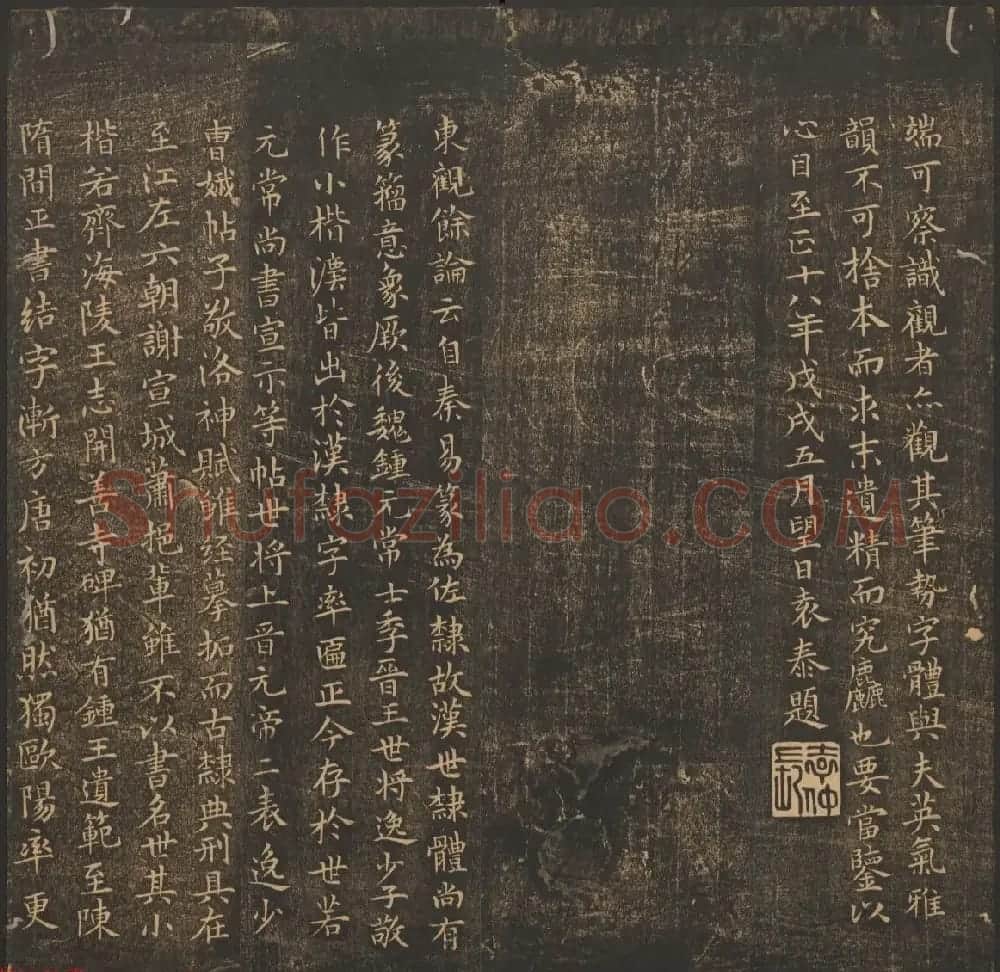 端可察識觀者亦觀其筆勢字體與夫英氣雅
韻不可捨本而求末遺精而究麤也要當鑒以
心目至正十八年戊戌五月望日袁泰題
東觀餘論云自秦易篆為佐隸故漢世隸體尚有
篆籀意象厥後魏鍾元常士季晉王世將逸少子敬
作小楷瀍皆出於漢隸字率匾正今存於世若
元常尚書宣示等帖世將上晉元帝二表逸少
曹娥帖子敬洛神賦雖經摹拓而古隸典刑具在
至江左六朝謝宣城蕭挹輩雖不以書名世其小
楷若齊海陵王志開善寺碑猶有鍾王遺範至陳
隋間正書結字漸方唐初猶然獨歐陽率更
Shufaziliao.COM